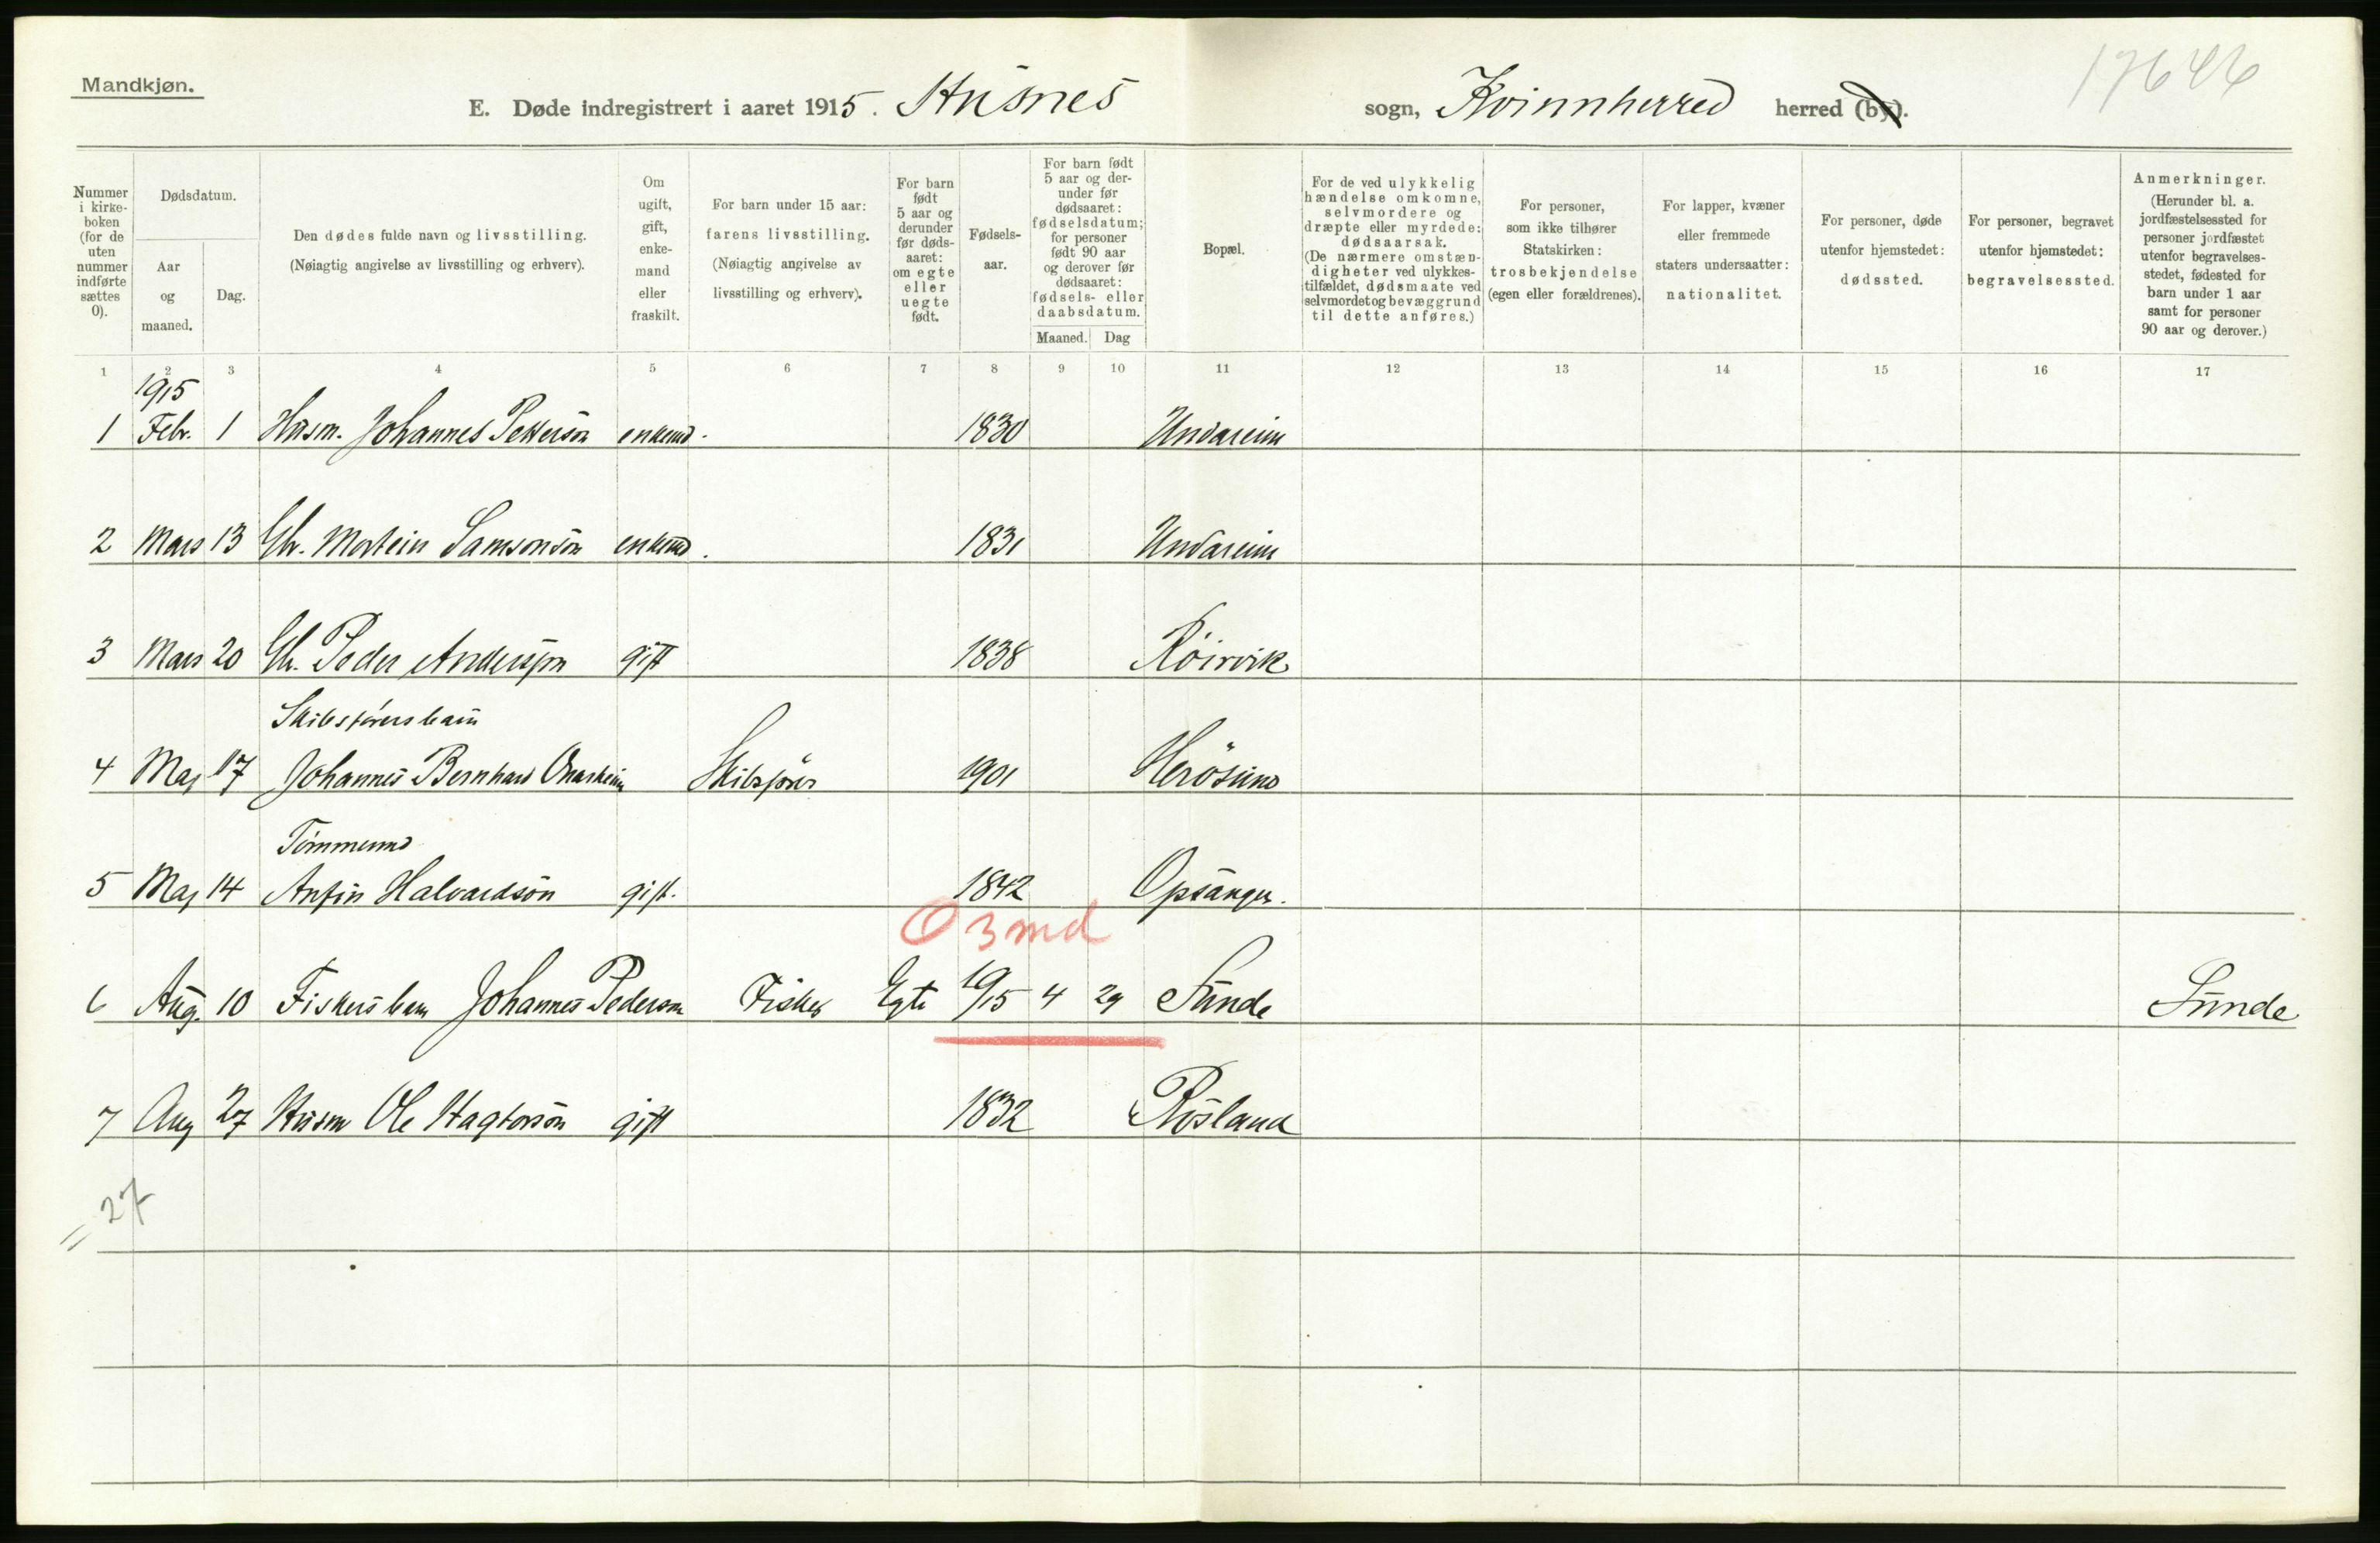 Mandkjøn.
17646
E. Døde indregistrert i aaret 1915. Husnes sogn, Kvinnherred herred (by).
Nummer i kirke-boken (for de uten nummer indførte sættes 0).
Dødsdatum.
Aar og maaned.
Dag.
Den dødes fulde navn og livsstilling.
(Nøiagtig angivelse av livsstilling og erhverv).
Om ugift, gift, enke-mand eller fraskilt.
For barn under 15 aar: farens livsstilling.
(Nøiagtig angivelse av livsstilling og erhverv).
For barn født 5 aar og derunder før døds-aaret: om egte eller uegte født.
Fødsels-aar.
For barn født 5 aar og der-under før dødsaaret: fødselsdatum; for personer født 90 aar og derover før dødsaaret: fødsels- eller daabsdatum.
Maaned. Dag
Bopæl.
For de ved ulykkelig hændelse omkomne, selvmordere og dræpte eller myrdede: dødsaarsak.
(De nærmere omstæn-digheter ved ulykkes-tilfældet, dødsmaate ved selvmord et og bevæggrund til dette anføres.)
For personer, som ikke tilhører Statskirken: trosbekjendelse (egen eller forældrenes).
For lapper, kvæner eller fremmede staters undersaatter: nationalitet.
For personer, døde utenfor hjemstedet: dødssted.
For personer, begravet utenfor hjemstedet: begravelsessted.
Anmerkninger.
(Herunder bl. a. jordfæstelsessted for personer jordfæstet utenfor begravelses-stedet, fødested for barn under 1 aar samt for personer 90 aar og derover.)
1 2 3 4 5 6 7 8 9 10 11 12 13 14 15 16 17
1915
1 Febr. 1 Husm. Johannes Petterson enkemd. 1830 Undareim
2 Mars 13 Gbr. Mortein Samsonsön enkemd. 1831 Undareim
3 Mars 20 Gbr. Peder Anderson gift 1838 Röirvik
Skibsförersbarn
4 Maj 17 Johannes Bernhard Onarheim Skibsförer 1901 Herösund
Tömmermd
5 Maj 14 Anfin Halvardsön gift. 1842 Opsanger.
0 3 md
6 Aug. 10 Fiskers barn Johannes Pederson Fisker Egte 1915 4 29 Sunde Sunde
7 Aug 27 Husm Ole Hagtorsön gift 1832 Røsland
= 27